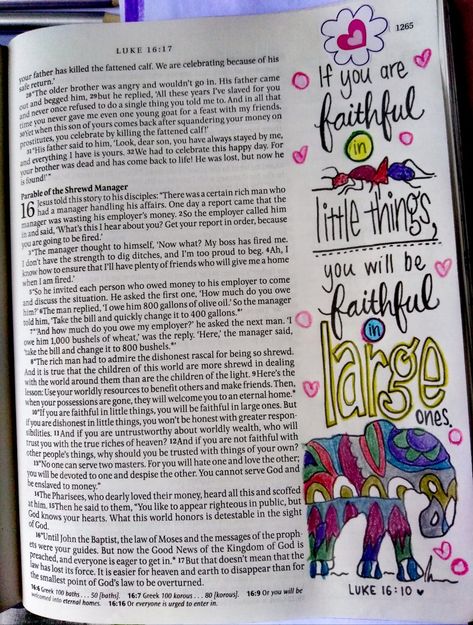 LUKE 16:17
1265
your father has killed the fattened calf. We are celebrating because of his
safe return.'
28"The older brother was angry and wouldn't go in. His father came
out and begged him, 29but he replied, 'All these years I've slaved for you
and never once refused to do a single thing you told me to. And in all that
time you never gave me even one young goat for a feast with my friends.
30Yet when this son of yours comes back after squandering your money on
prostitutes, you celebrate by killing the fattened calf!'
31"His father said to him, 'Look, dear son, you have always stayed by me,
and everything I have is yours. 32We had to celebrate this happy day. For
your brother was dead and has come back to life! He was lost, but now he
is found!'"
Parable of the Shrewd Manager
16 Jesus told this story to his disciples: "There was a certain rich man who
had a manager handling his affairs. One day a report came that the
manager was wasting his employer's money. 2So the employer called him
in and said, 'What's this I hear about you? Get your report in order, because
you are going to be fired.'
3"The manager thought to himself, 'Now what? My boss has fired me.
I don't have the strength to dig ditches, and I'm too proud to beg. 4Ah, I
know how to ensure that I'll have plenty of friends who will give me a home
when I am fired.'
5"So he invited each person who owed money to his employer to come
and discuss the situation. He asked the first one, 'How much do you owe
him?' 6The man replied, 'I owe him 800 gallons of olive oil.' So the manager
told him, 'Take the bill and quickly change it to 400 gallons.*'
7"'And how much do you owe my employer?' he asked the next man. 'I
owe him 1,000 bushels of wheat,' was the reply. 'Here,' the manager said,
'take the bill and change it to 800 bushels.*'
8"The rich man had to admire the dishonest rascal for being so shrewd.
And it is true that the children of this world are more shrewd in dealing
with the world around them than are the children of the light. 9Here's the
lesson: Use your worldly resources to benefit others and make friends. Then,
when your possessions are gone, they will welcome you to an eternal home.*
10"If you are faithful in little things, you will be faithful in large ones. But
if you are dishonest in little things, you won't be honest with greater respon-
sibilities. 11And if you are untrustworthy about worldly wealth, who will
trust you with the true riches of heaven? 12And if you are not faithful with
other people's things, why should you be trusted with things of your own?
13"No one can serve two masters. For you will hate one and love the other;
you will be devoted to one and despise the other. You cannot serve God and
be enslaved to money."
14The Pharisees, who dearly loved their money, heard all this and scoffed
at him. 15Then he said to them, "You like to appear righteous in public, but
God knows your hearts. What this world honors is detestable in the sight
of God.
16"Until John the Baptist, the law of Moses and the messages of the proph-
ets were your guides. But now the Good News of the Kingdom of God is
preached, and everyone is eager to get in.* 17But that doesn't mean that the
law has lost its force. It is easier for heaven and earth to disappear than for
the smallest point of God's law to be overturned.
16:6 Greek 100 baths . . . 50 [baths]. 16:7 Greek 100 korous . . . 80 [korous]. 16:9 Or you will be
welcomed into eternal homes. 16:16 Or everyone is urged to enter in.
If you are
faithful
in
little things,
you will be
faithful
in
large
ones.
LUKE 16:10